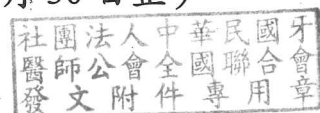 月 30 日止)
社團法人中華民國牙
醫師公會全國聯合會
發文附件專用章